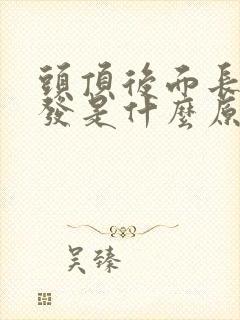 頭頂後而長
發是什麼原
吴臻